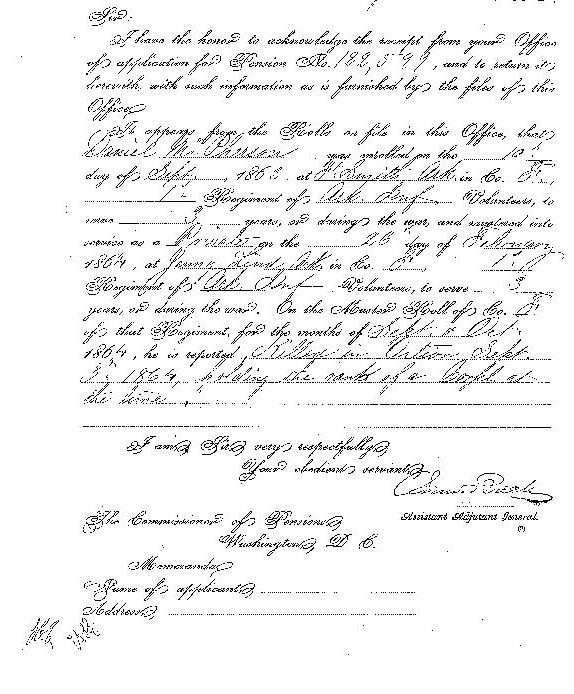 Sir:
I have the honor to acknowledge the receipt from your Office
of application for Pension No. 182,599, and to return it
herewith, with such information as is furnished by the files of this
Office.
It appears from the Rolls on file in this Office, that
Daniel McPherson was enrolled on the 10"
day of Sept, 1863 at Ft Smith Ark in Co. F,
1" Regiment of Ark Inf Volunteers, to
serve 3 years, or during the war, and mustered into
service as a Private on the 26 day of February
1864, at Jenny Lind, Ark in Co. F, 1"
Regiment of Ark Inf Volunteers, to serve 3
years, or during the war. On the Muster Roll of Co. F
of that Regiment, for the months of Sept & Oct
1864, he is reported Killed in Action Sept
1864, holding the rank of a Corpl at
the time.
I am, Sir, very respectfully,
Your obedient servant,
Assistant Adjutant General.
The Commissioner of Pensions,
Washington, D. C.
Memoranda:
Name of applicant,
Address,